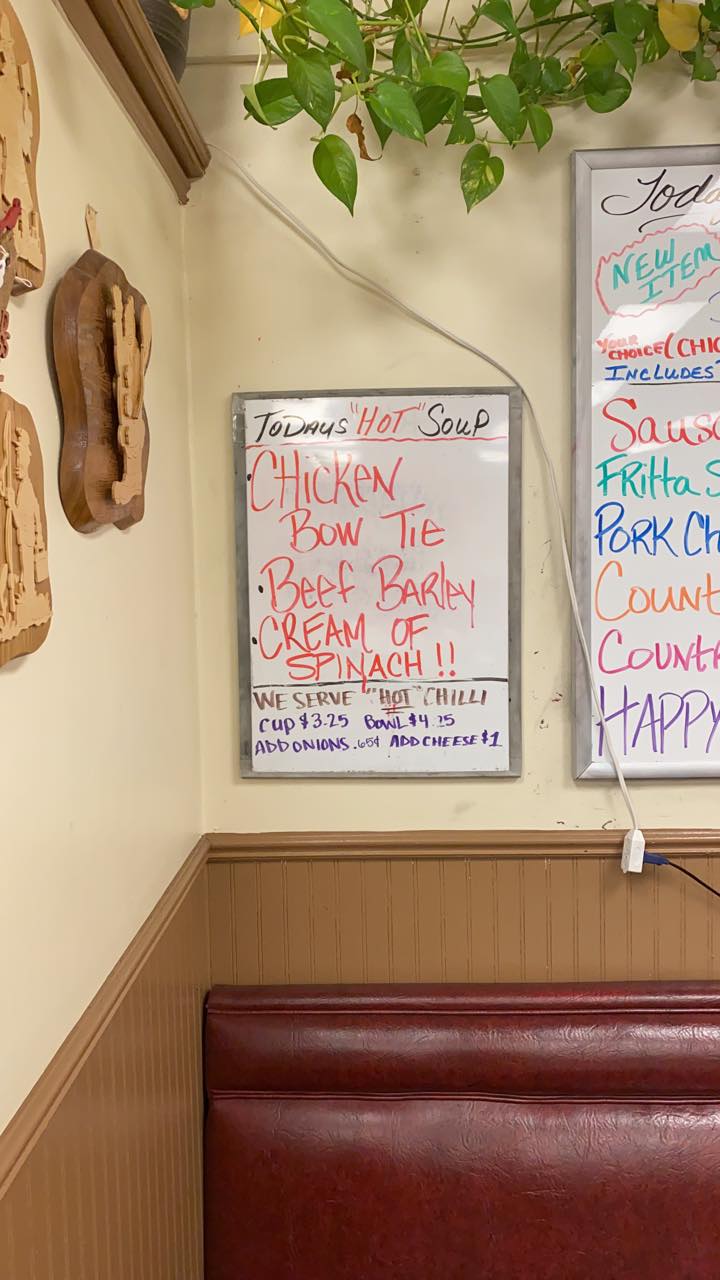 TODAYS "HOT" SOUP
CHICKEN
BOW TIE
• BEEF BARLEY
• CREAM OF
SPINACH !!
WE SERVE "HOT" CHILLI
CUP $3.25 BOWL $4.25
ADD ONIONS .65¢ ADD CHEESE $1
NEW
ITEM
YOUR
CHOICE (CHIC
INCLUDES
SAUSA
FRITTA S
PORK CH
COUNT
COUNTR
HAPPY